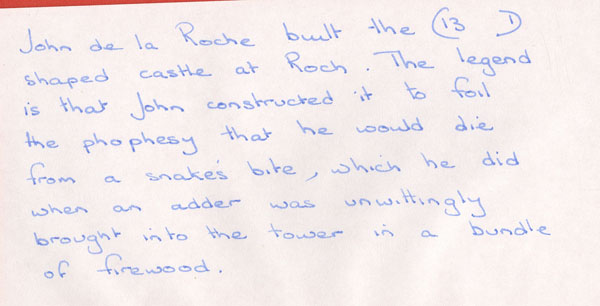 John de la Roche built the (13 D)
shaped castle at Roch. The legend
is that John constructed it to foil
the phophesy that he would die
from a snake's bite, which he did
when an adder was unwittingly
brought into the tower in a bundle
of firewood.